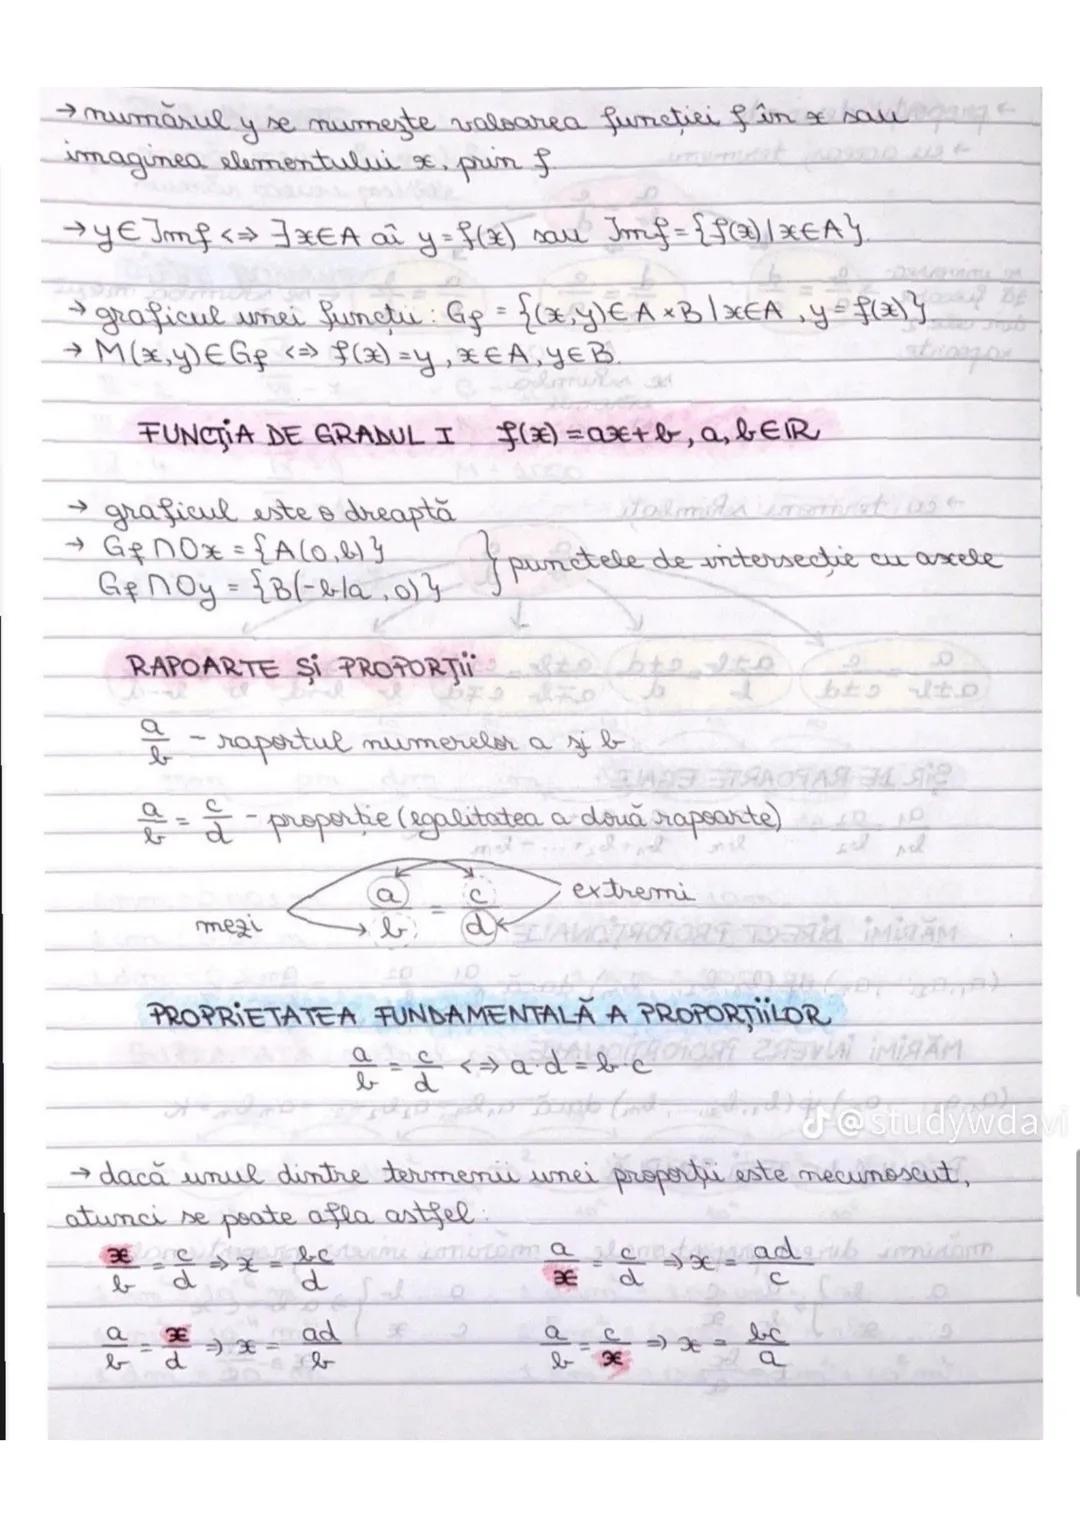 → numărul y se numește valoarea funcției f în x sau
imaginea elementului x prin f
→ y ∈ Imf <=> ∃x∈A aî y=f(x) sau Imf={f(x)|x∈A}.
→ graficul unei funcții: Gf = {(x,y)∈A×B|x∈A, y=f(x)}
→ M(x,y)∈Gf <=> f(x)=y, x∈A, y∈B.
FUNCȚIA DE GRADUL I f(x)=ax+b, a, b∈ℝ
→ graficul este o dreaptă
→ Gf∩Ox = {A(0,b)}
Gf∩Oy = {B(-b/a, 0)} } punctele de intersecție cu axele
RAPOARTE ȘI PROPORȚII
a/b - raportul numerelor a și b
a/b = c/d - proporție (egalitatea a două rapoarte)
mezi a/b = c/d extremi
PROPRIETATEA FUNDAMENTALĂ A PROPORȚIILOR
a/b = c/d <=> a·d = b·c
@studywdavi
→ dacă unul dintre termenii unei proporții este necunoscut,
atunci se poate afla astfel:
x/b = c/d => x = bc/d a/x = c/d => x = ad/c
a/b = x/d => x = ad/b a/b = c/x => x = bc/a